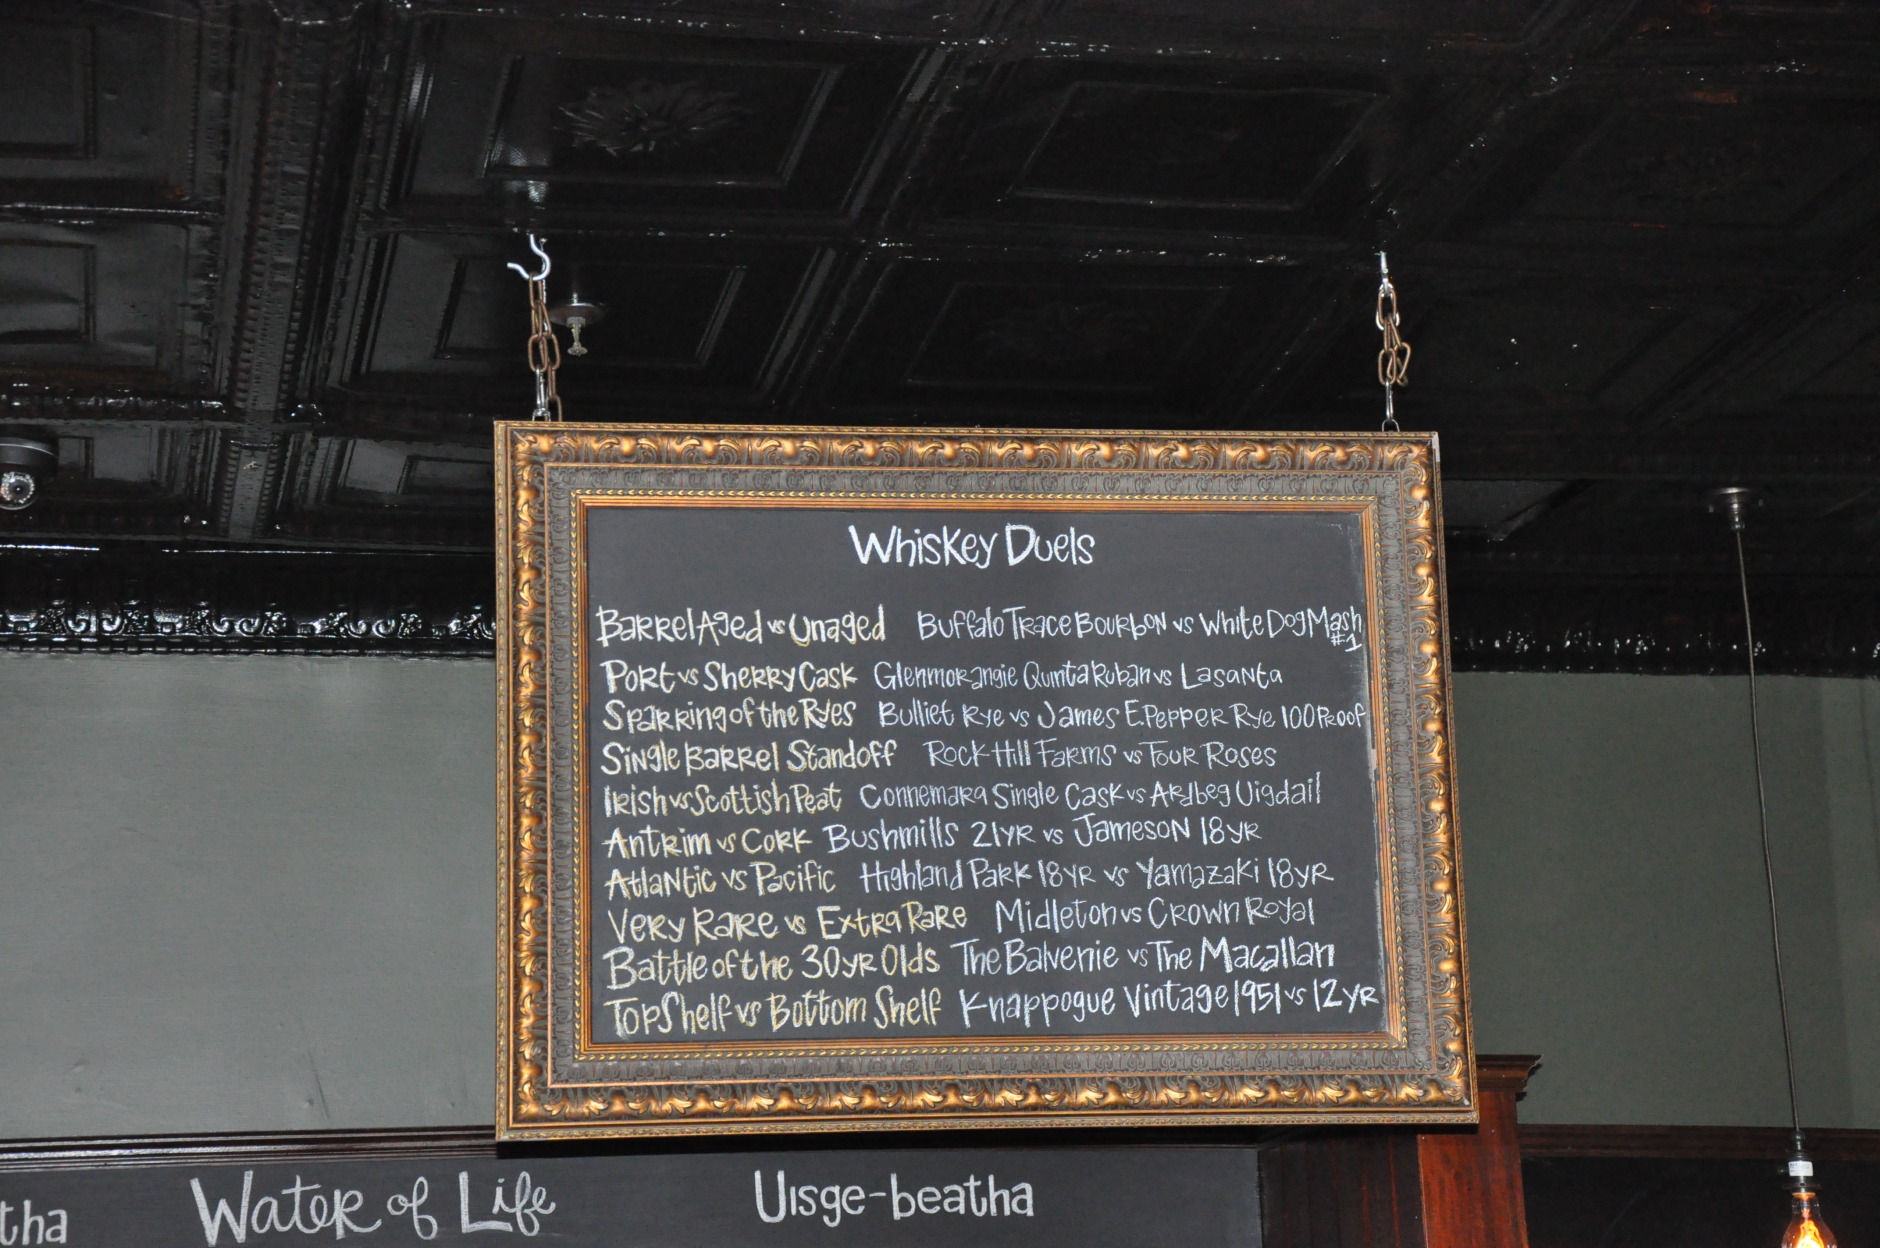 Whiskey Duels
Barrel Aged vs Unaged Buffalo Trace Bourbon vs White Dog Mash #1
Port vs Sherry Cask Glenmorangie Quinta Ruban vs Lasanta
Sparring of the Ryes Bulliet Rye vs James E. Pepper Rye 100 Proof
Single Barrel Standoff Rock Hill Farms vs Four Roses
Irish vs Scottish Peat Connemara Single Cask vs Ardbeg Uigdail
Antrim vs Cork Bushmills 21yr vs Jameson 18yr
Atlantic vs Pacific Highland Park 18yr vs Yamazaki 18yr
Very Rare vs Extra Rare Midleton vs Crown Royal
Battle of the 30yr Olds The Balvenie vs The Macallan
Top Shelf vs Bottom Shelf Knappogue Vintage 1951 vs 12yr
tha Water of Life Uisge-beatha